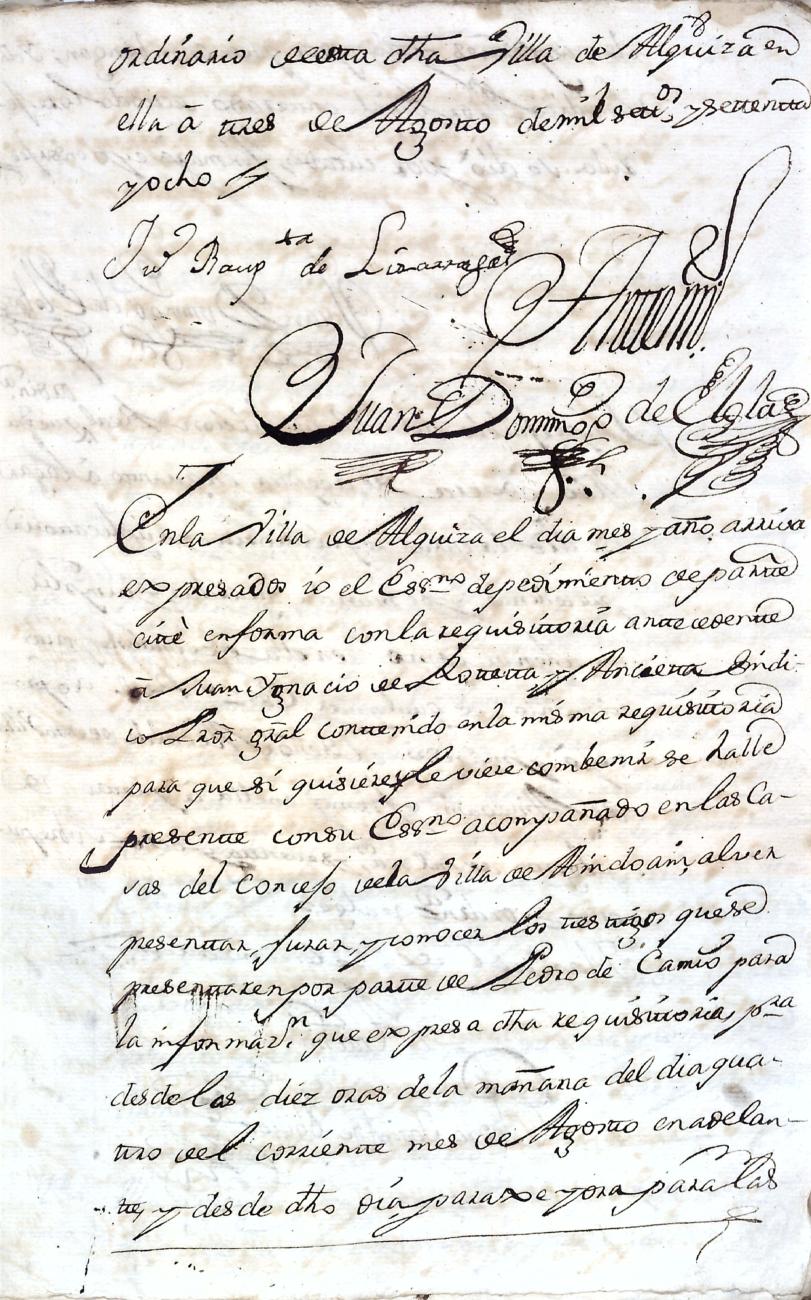 ordinario de esta dha Villa de Alquiza en
ella â tres de Agosto de mil setos y settentta
y ocho
Jn Baupta de Lizarraga
Antemi
Juan Domingo de Elola
En la Villa de Alquiza el dia mes y año arriva
expresados io el Essno de pedimiento de partte
citè en forma con la requisittoria antecedentte
â Juan Ygnacio de Rotetta y Ancietta Sindi-
co Pror gral conttenido en la misma requisittoria
para que si quisiere y le viere combenir se halle
presentte con su Essno acompañado en las Ca-
sas del Concejo de la Villa de Andoain, al ver
presenttar, jurar, y conocer los testtigos que se
presenttaren por partte de Pedro de Camio para
la informazn que expresa dha requisittoria, pra
desde las diez oras de la mañana del dia qua-
ttro del corrientte mes de Agostto en adelan-
tte, y desde dho dia paraxe y ora para las